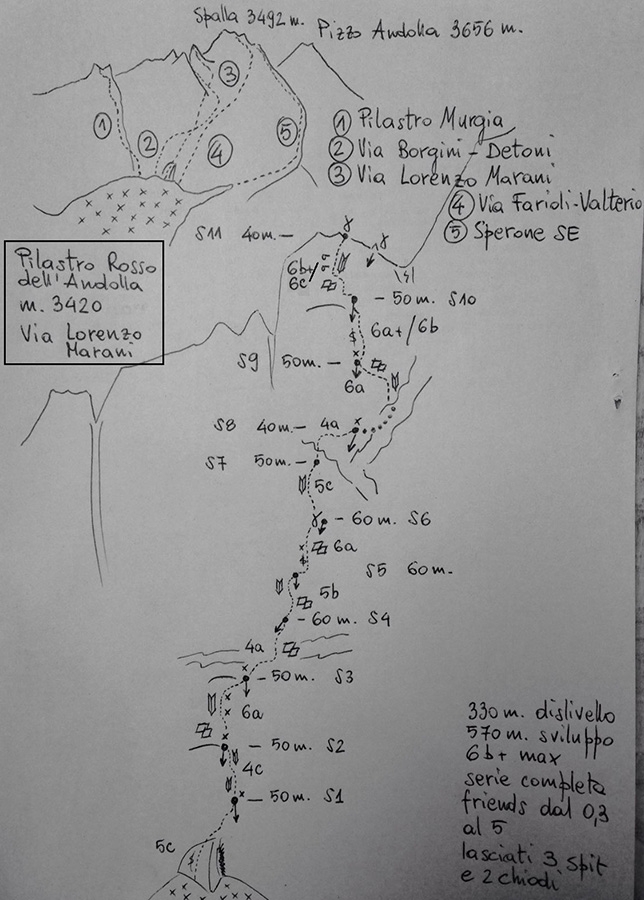 Spalla 3492 m.
Pizzo Andolla 3656 m.
3
1
2
4
5
1 Pilastro Murgia
2 Via Borgini - Detoni
3 Via Lorenzo Marani
4 Via Farioli-Valterio
5 Sperone SE
Pilastro Rosso
dell'Andolla
m. 3420
Via Lorenzo
Marani
S11 40m.
6b+/
6c
50m. S10
6a+/6b
S9 50m.
6a
S8 40m. 4a
S7 50m.
5c
60m. S6
6a
S5 60m.
5b
60m. S4
4a
50m. S3
6a
50m. S2
4c
50m. S1
5c
330 m. dislivello
570 m. sviluppo
6b+ max
serie completa
friends dal 0,3
al 5
lasciati 3 spit
e 2 chiodi